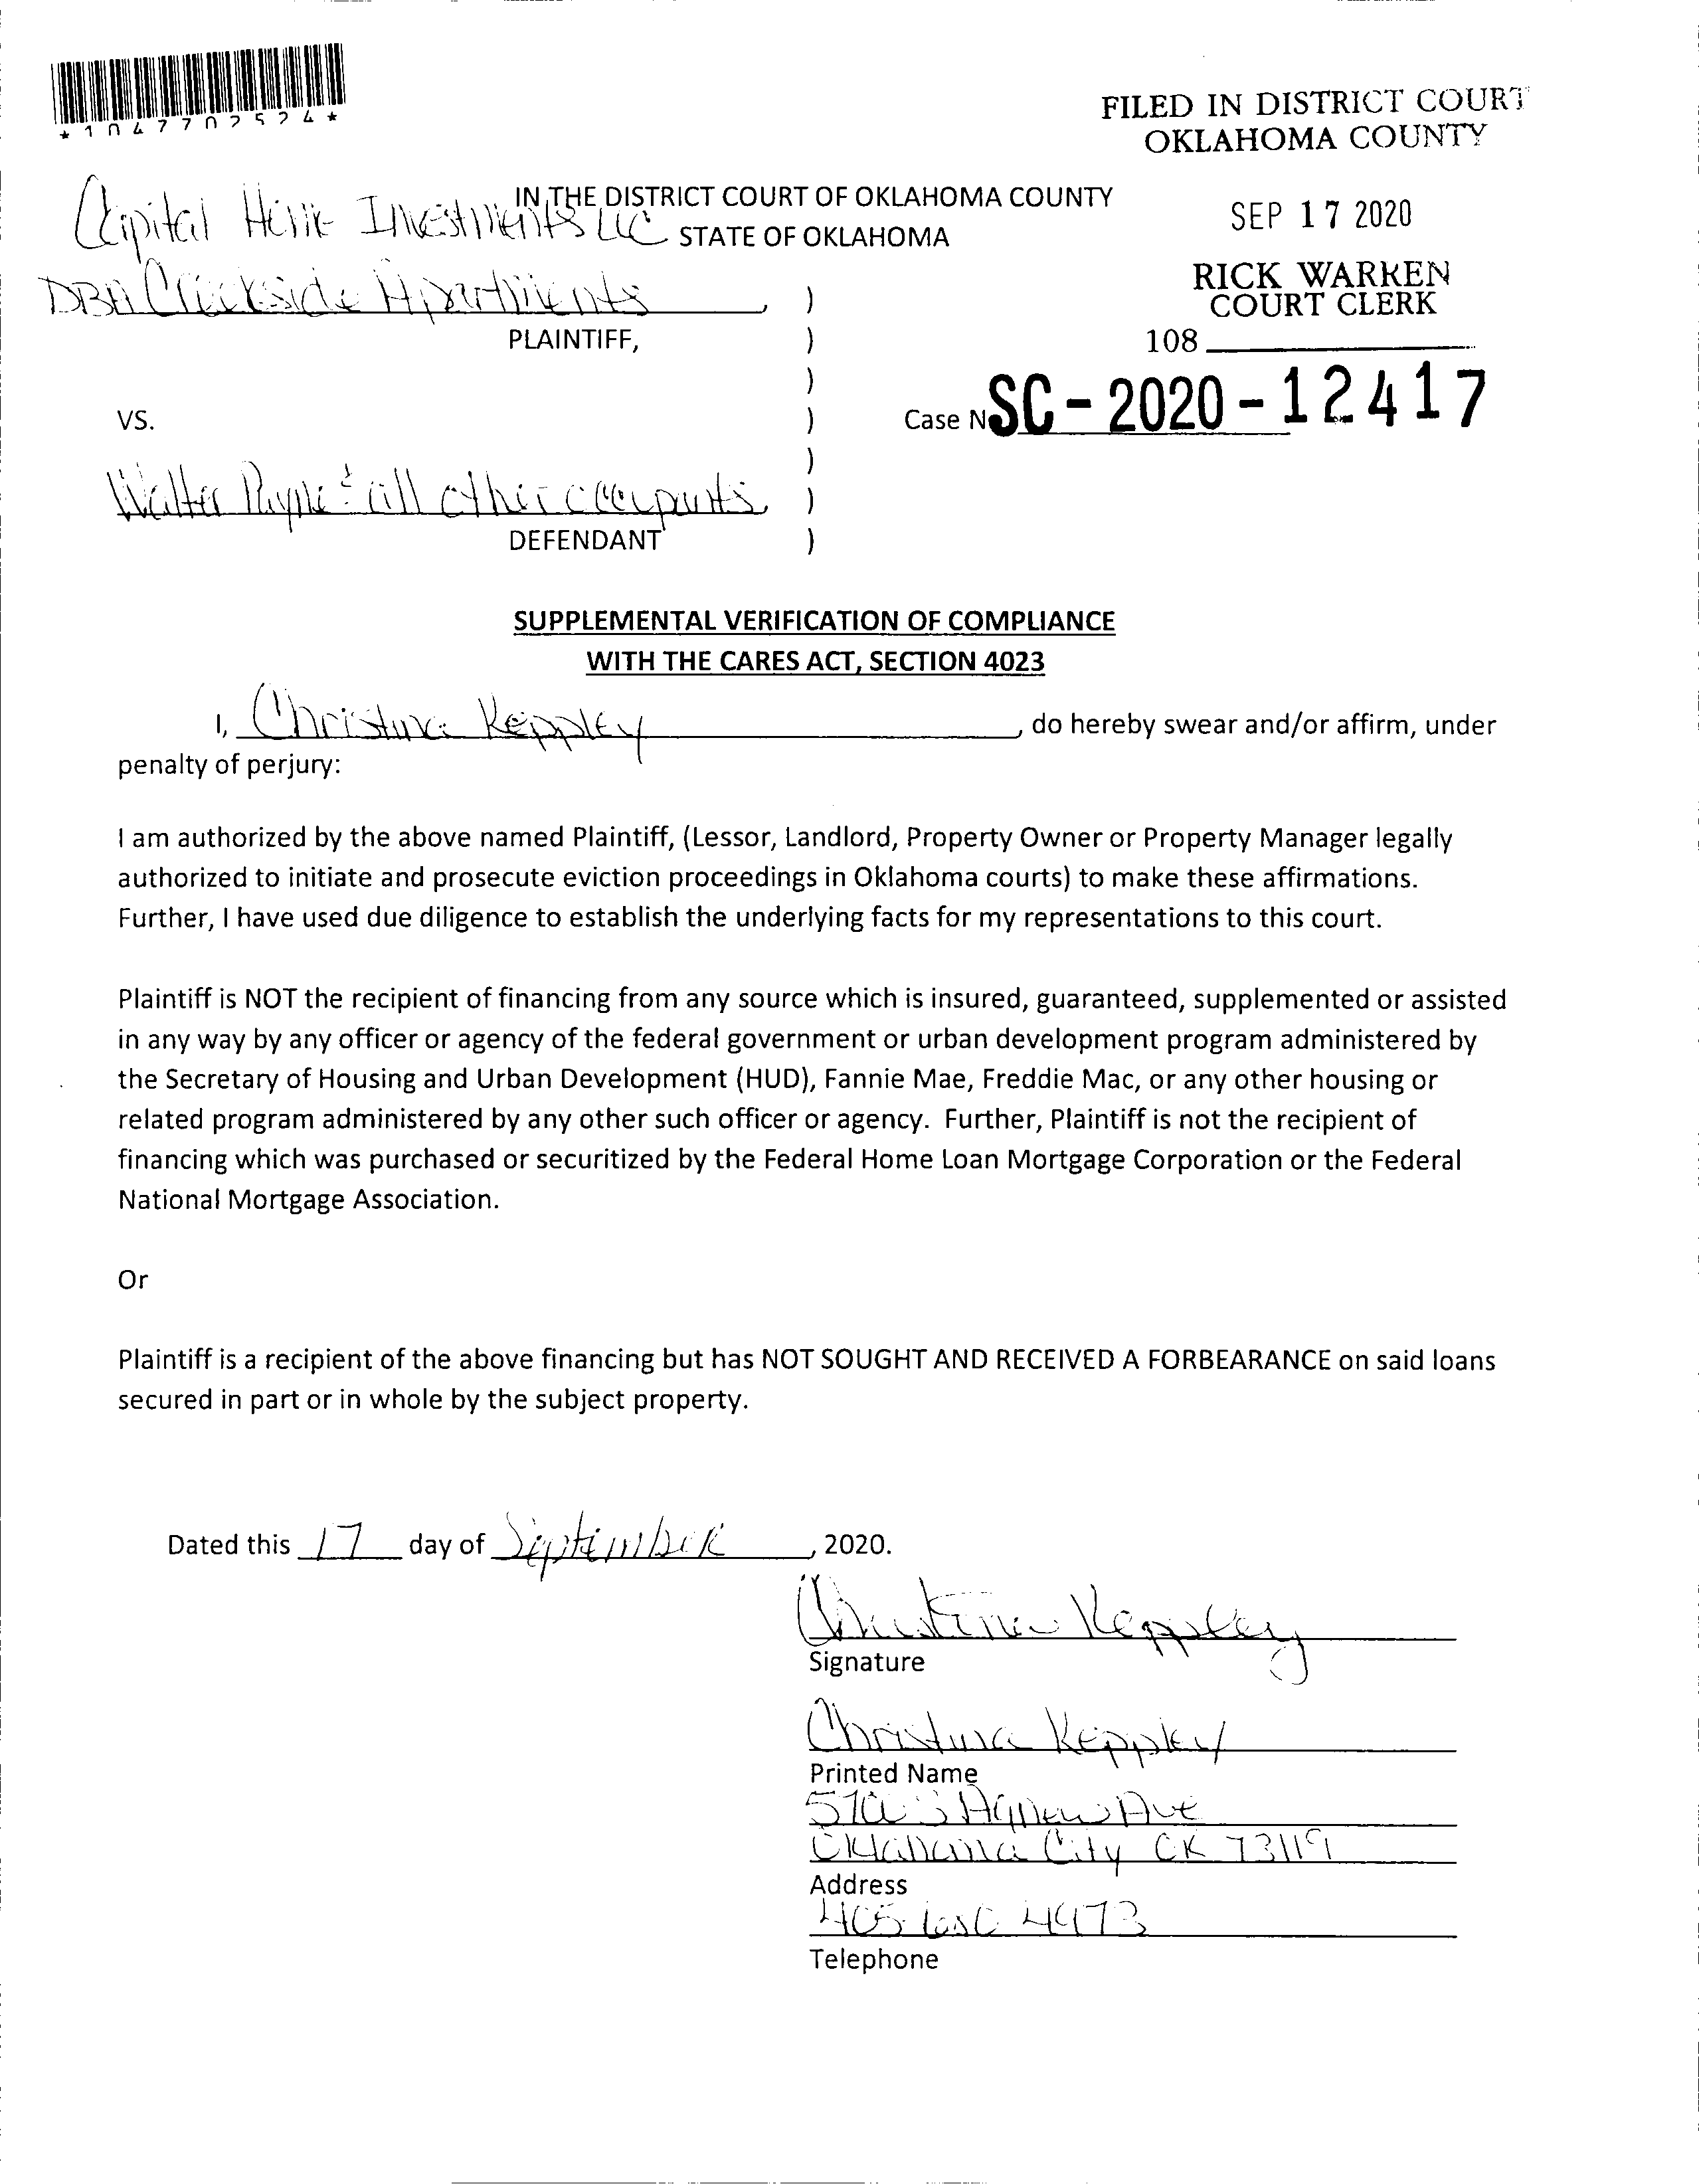 *1047702524*
FILED IN DISTRICT COURT
OKLAHOMA COUNTY
SEP 17 2020
RICK WARREN
COURT CLERK
108
IN THE DISTRICT COURT OF OKLAHOMA COUNTY
STATE OF OKLAHOMA
Capital Home Investments LLC
DBA Creekside Apartments, )
PLAINTIFF, )
)
VS. ) Case N SC-2020-12417
)
Walter Payne & all other occupants, )
DEFENDANT )
SUPPLEMENTAL VERIFICATION OF COMPLIANCE
WITH THE CARES ACT, SECTION 4023
I, Christina Keppley, do hereby swear and/or affirm, under
penalty of perjury:
I am authorized by the above named Plaintiff, (Lessor, Landlord, Property Owner or Property Manager legally
authorized to initiate and prosecute eviction proceedings in Oklahoma courts) to make these affirmations.
Further, I have used due diligence to establish the underlying facts for my representations to this court.
Plaintiff is NOT the recipient of financing from any source which is insured, guaranteed, supplemented or assisted
in any way by any officer or agency of the federal government or urban development program administered by
the Secretary of Housing and Urban Development (HUD), Fannie Mae, Freddie Mac, or any other housing or
related program administered by any other such officer or agency. Further, Plaintiff is not the recipient of
financing which was purchased or securitized by the Federal Home Loan Mortgage Corporation or the Federal
National Mortgage Association.
Or
Plaintiff is a recipient of the above financing but has NOT SOUGHT AND RECEIVED A FORBEARANCE on said loans
secured in part or in whole by the subject property.
Dated this 17 day of September, 2020.
Christina Keppley
Signature
Christina Keppley
Printed Name
S Agnew Ave
Oklahoma City OK 73119
Address
405 4473
Telephone